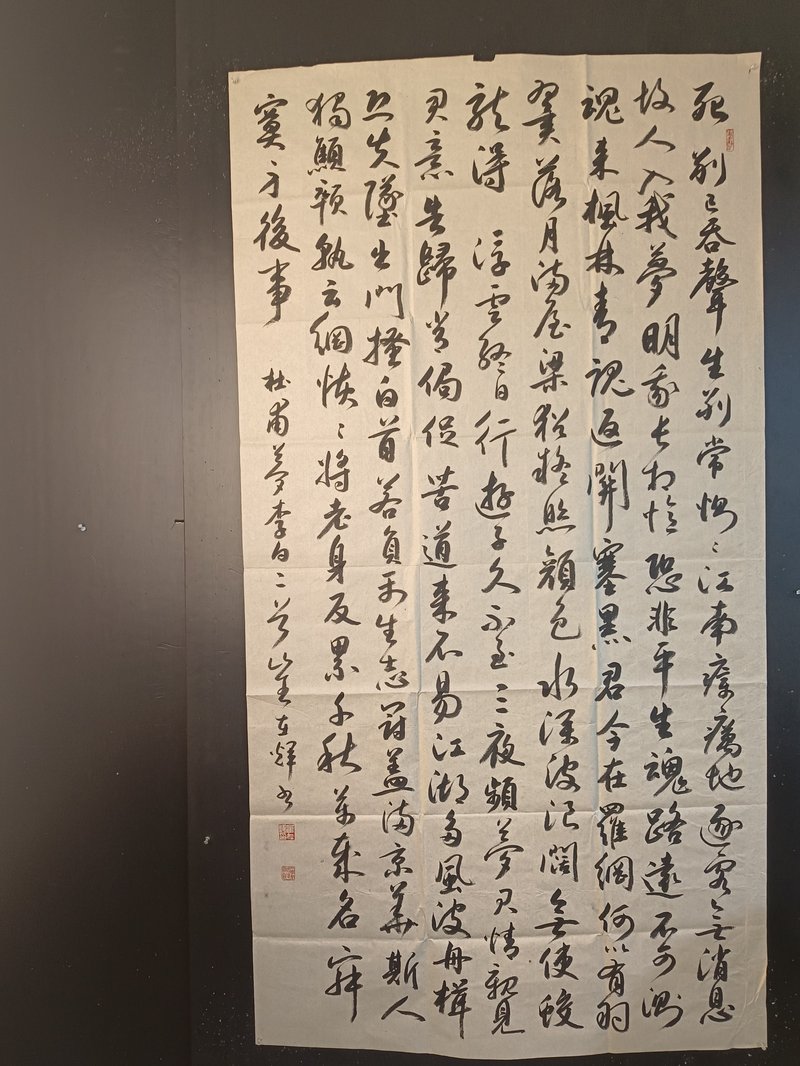 死别已吞聲生别常惻〻江南瘴癘地逐客無消息
故人入我夢明我長相憶恐非平生魂路遠不可測
魂来楓林青魂返關塞黑君今在羅網何以有羽
翼落月滿屋梁猶疑照顔色水深波浪闊無使蛟
龍得 浮雲終日行遊子久不至三夜頻夢君情親見
君意告歸常侷促苦道来不易江湖多風波舟楫
恐失墜出門搔白首若負平生志冠蓋滿京華斯人
獨顦顇孰云網恢〻將老身反累千秋萬歲名寂
寞身後事 杜甫夢李白二首 崔在輝书